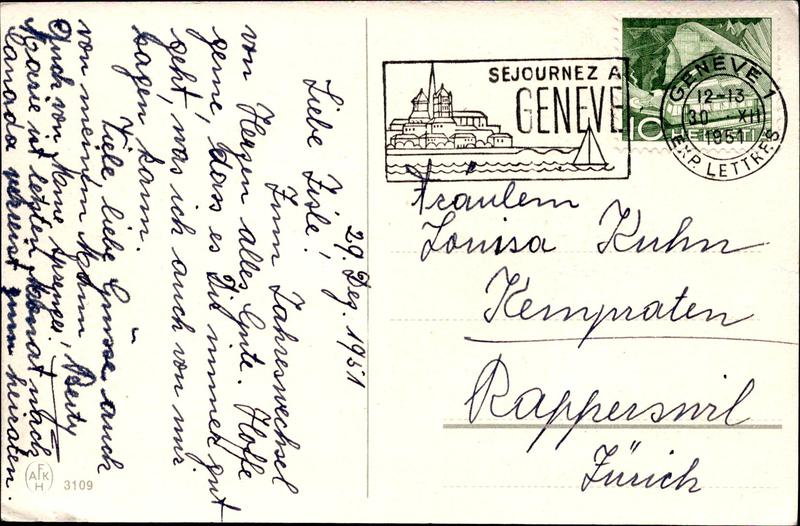 29. Dez. 1951
Liebe Lisle!
Zum Jahreswechsel
von Herzen alles Gute. Hoffe
gerne, dass es Dir immer gut
geht, was ich auch von mir
sagen kann.
Viele, liebe Grüsse, auch
von meinem Mann
Berty
Auch von Mame
Marie ist letzten Monat nach
Canada gereist zum heiraten.
AFKH 3109
SEJOURNEZ A
GENEVE
GENEVE 1
12-13
30 XII
1951
EXP. LETTRES
10 HELVETIA
Fräulein
Louisa Kuhn
Kempraten
Rapperswil
Zürich